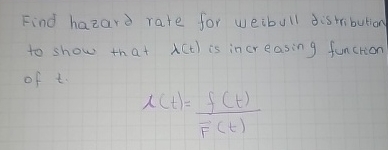 Find hazard rate for weibull distribution
to show that λ(t) is increasing function
of t.
λ(t) = f(t) / F̅(t)